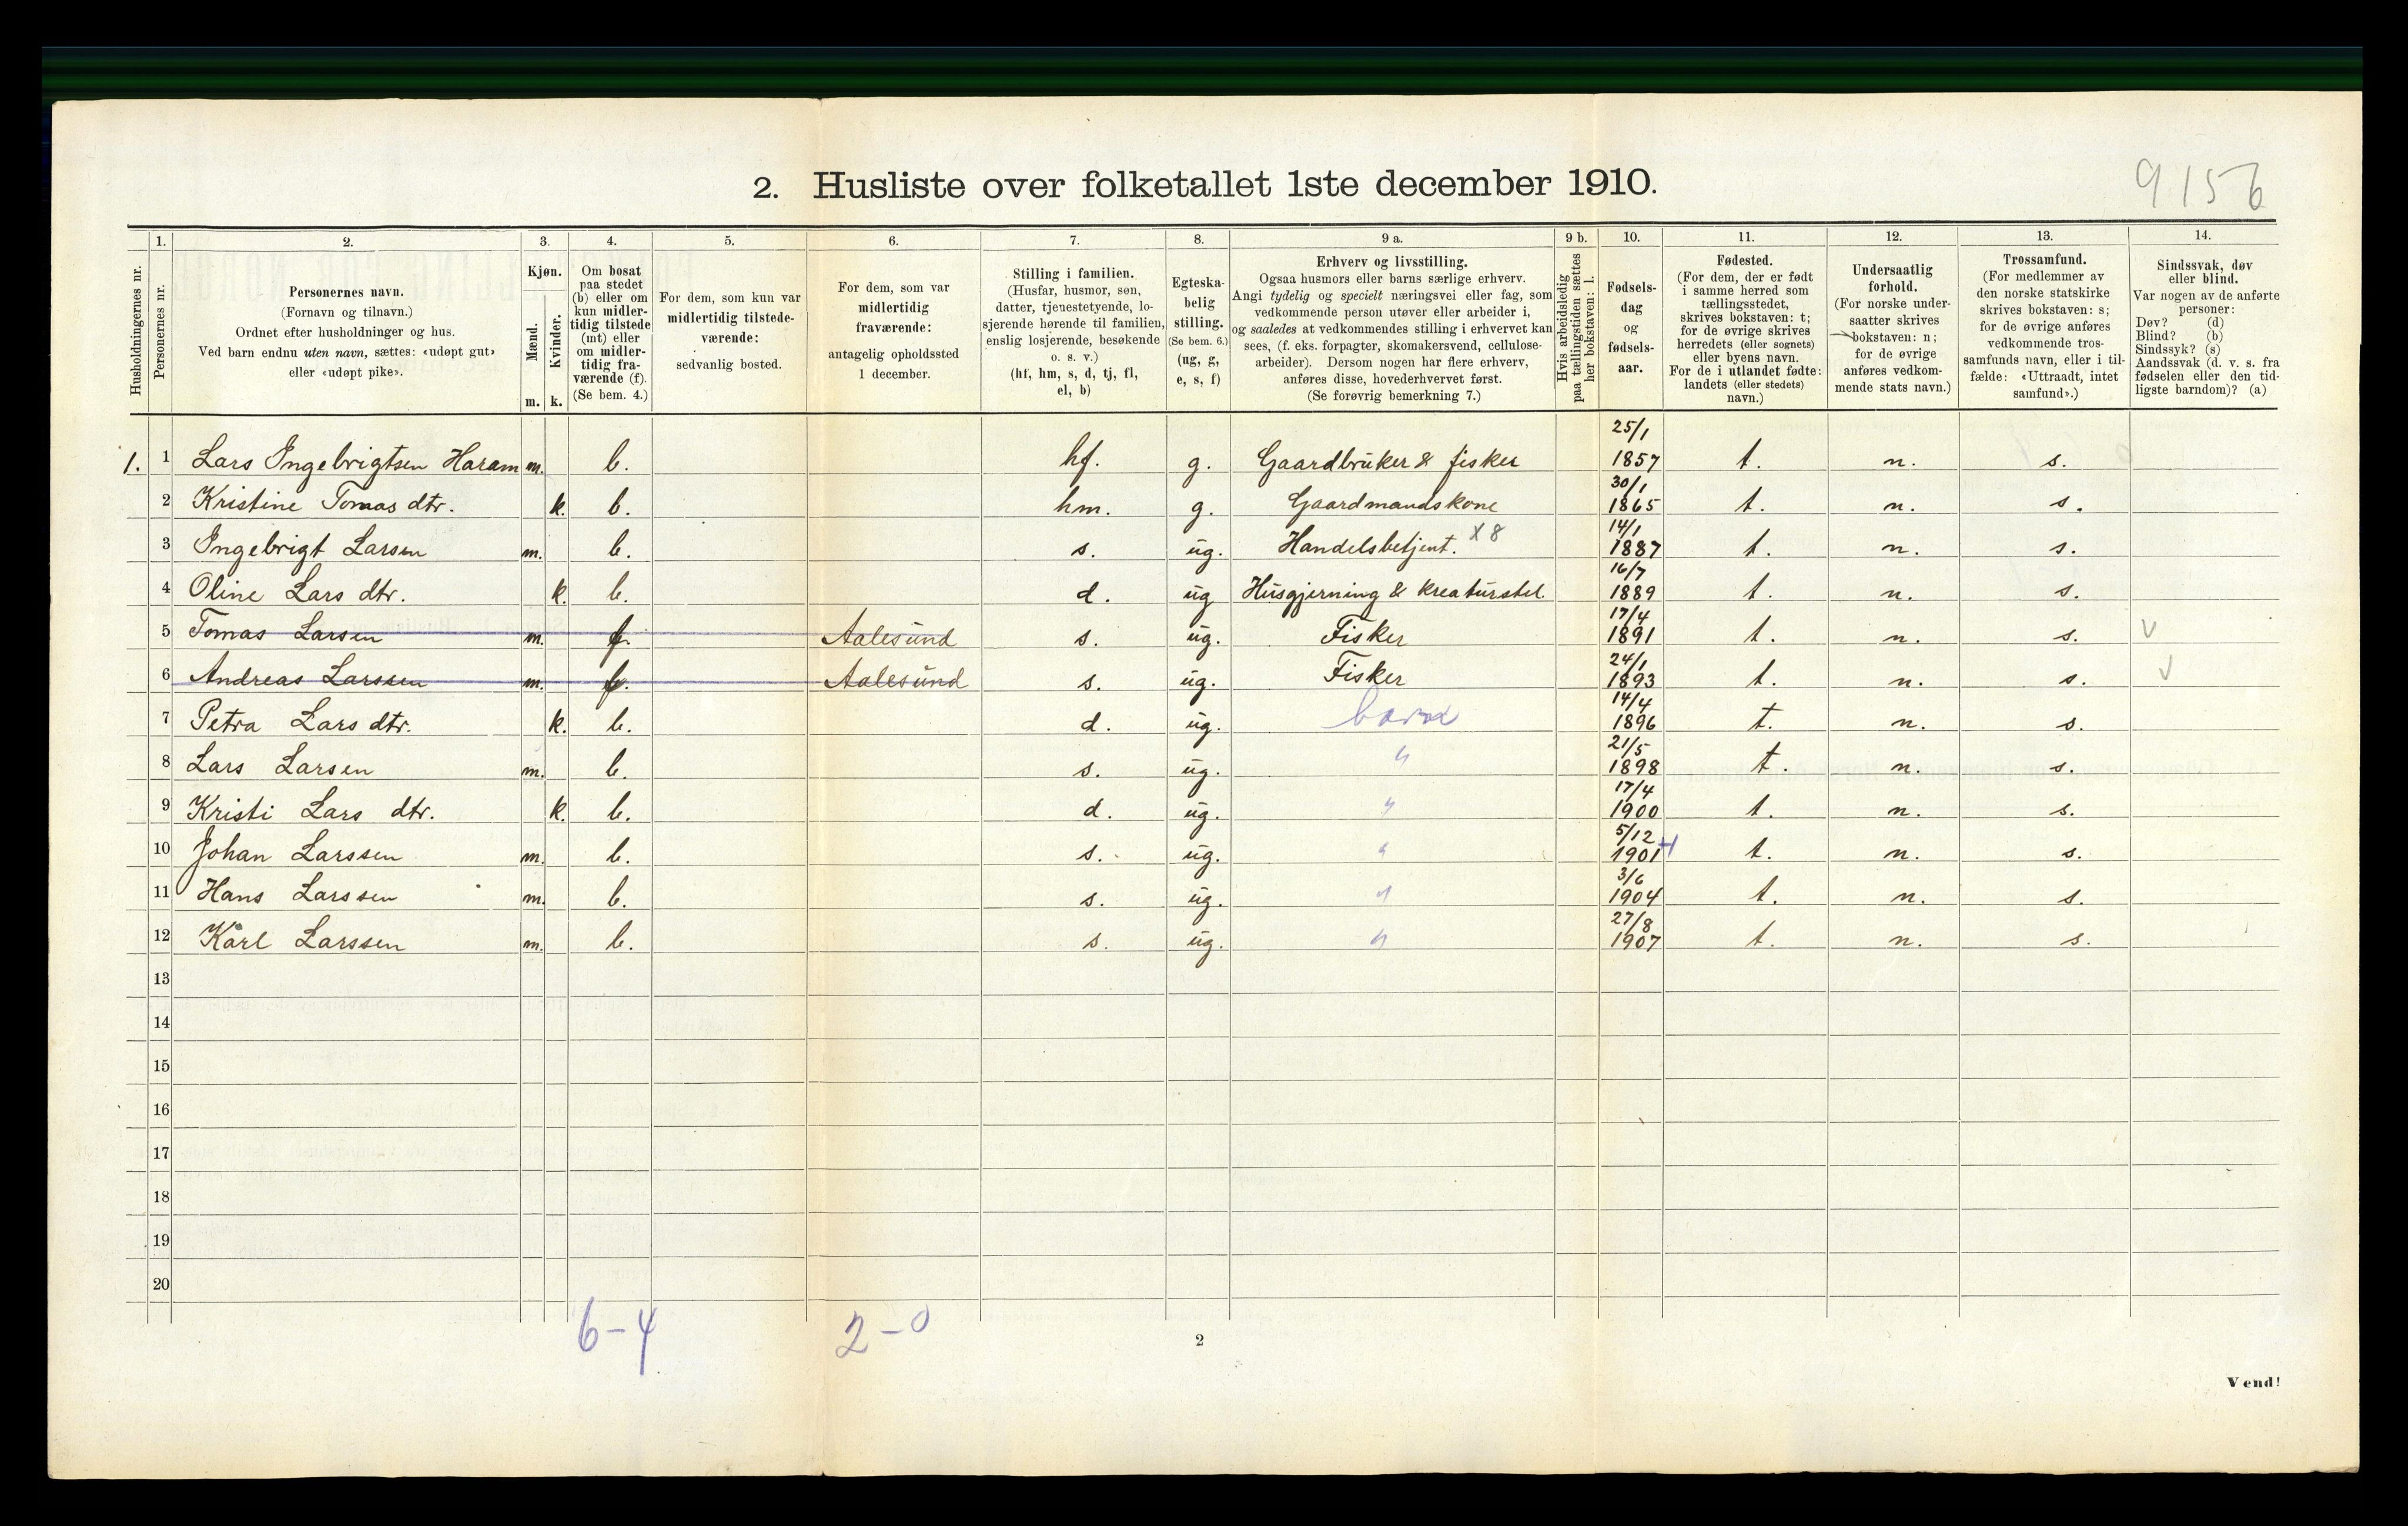 2. Husliste over folketallet 1ste december 1910.
9156
1. 2. 3. 4. 5. 6. 7. 8. 9 a. 9 b. 10. 11. 12. 13. 14.
Husholdningernes nr.
Personernes nr.
Personernes navn.
(Fornavn og tilnavn.)
Ordnet efter husholdninger og hus.
Ved barn endnu uten navn, sættes: «udøpt gut»
eller «udøpt pike».
Kjøn.
Mænd.
Kvinder.
m. k.
Om bosat
paa stedet
(b) eller om
kun midler-
tidig tilstede
(mt) eller
om midler-
tidig fra-
værende (f).
(Se bem. 4.)
For dem, som kun var
midlertidig tilstede-
værende:
sedvanlig bosted.
For dem, som var
midlertidig
fraværende:
antagelig opholdssted
1 december.
Stilling i familien.
(Husfar, husmor, søn,
datter, tjenestetyende, lo-
sjerende hørende til familien,
enslig losjerende, besøkende
o. s. v.)
(hf, hm, s, d, tj, fl,
el, b)
Egteska-
belig
stilling.
(Se bem. 6.)
(ug, g,
e, s, f)
Erhverv og livsstilling.
Ogsaa husmors eller barns særlige erhverv.
Angi tydelig og specielt næringsvei eller fag, som
vedkommende person utøver eller arbeider i,
og saaledes at vedkommendes stilling i erhvervet kan
sees, (f. eks. forpagter, skomakersvend, cellulose-
arbeider). Dersom nogen har flere erhverv,
anføres disse, hovederhvervet først.
(Se forøvrig bemerkning 7.)
Hvis arbeidsledig
paa tællingstiden sættes
her bokstaven: l.
Fødsels-
dag
og
fødsels-
aar.
Fødested.
(For dem, der er født
i samme herred som
tællingsstedet,
skrives bokstaven: t;
for de øvrige skrives
herredets (eller sognets)
eller byens navn.
For de i utlandet fødte:
landets (eller stedets)
navn.)
Undersaatlig
forhold.
(For norske under-
saatter skrives
bokstaven: n;
for de øvrige
anføres vedkom-
mende stats navn.)
Trossamfund.
(For medlemmer av
den norske statskirke
skrives bokstaven: s;
for de øvrige anføres
vedkommende tros-
samfunds navn, eller i til-
fælde: «Uttraadt, intet
samfund».)
Sindssvak, døv
eller blind.
Var nogen av de anførte
personer:
Døv? (d)
Blind? (b)
Sindssyk? (s)
Aandssvak (d. v. s. fra
fødselen eller den tid-
ligste barndom)? (a)
1. 1 Lars Ingebrigtsen Haram m. b. hf. g. Gaardbruker & fisker 25/1 1857 t. n. s.
2 Kristine Tomas dtr. k. b. hm. g. Gaardmandskone 30/1 1865 t. n. s.
3 Ingebrigt Larsen m. b. s. ug. Handelsbetjent. X8 14/1 1887 t. n. s.
4 Oline Lars dtr. k. b. d. ug Husgjerning & kreaturstel 16/7 1889 t. n. s.
5 Tomas Larsen m. f. Aalesund s. ug. Fisker 17/4 1891 t. n. s. V
6 Andreas Larssen m. f. Aalesund s. ug. Fisker 24/1 1893 t. n. s. V
7 Petra Lars dtr. k. b. d. ug. barn 14/4 1896 t. n. s.
8 Lars Larsen m. b. s. ug. " 21/5 1898 t. n. s.
9 Kristi Lars dtr. k. b. d. ug. " 17/4 1900 t. n. s.
10 Johan Larssen m. b. s. ug. " 5/12 1901 t. n. s.
11 Hans Larssen m. b. s. ug. " 3/6 1904 t. n. s.
12 Karl Larssen m. b. s. ug. " 27/8 1907 t. n. s.
13
14
15
16
17
18
19
20
6-4 2-0
2
Vend!